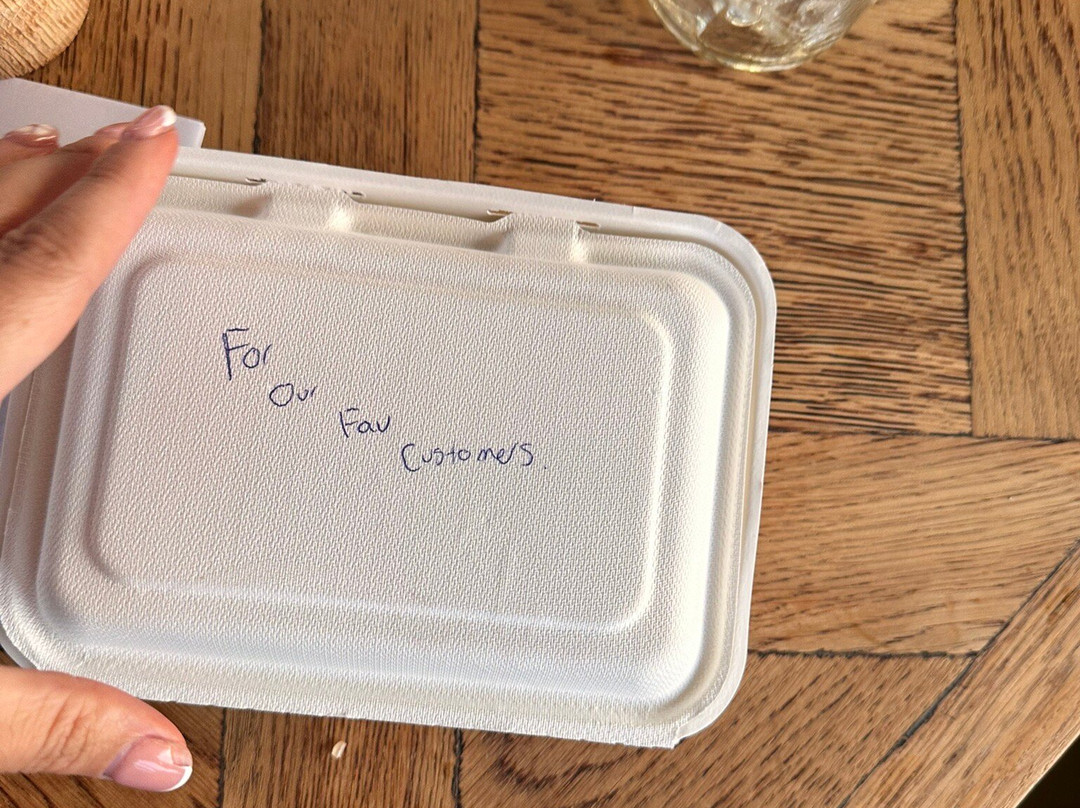 For
Our
Fav
Customers.